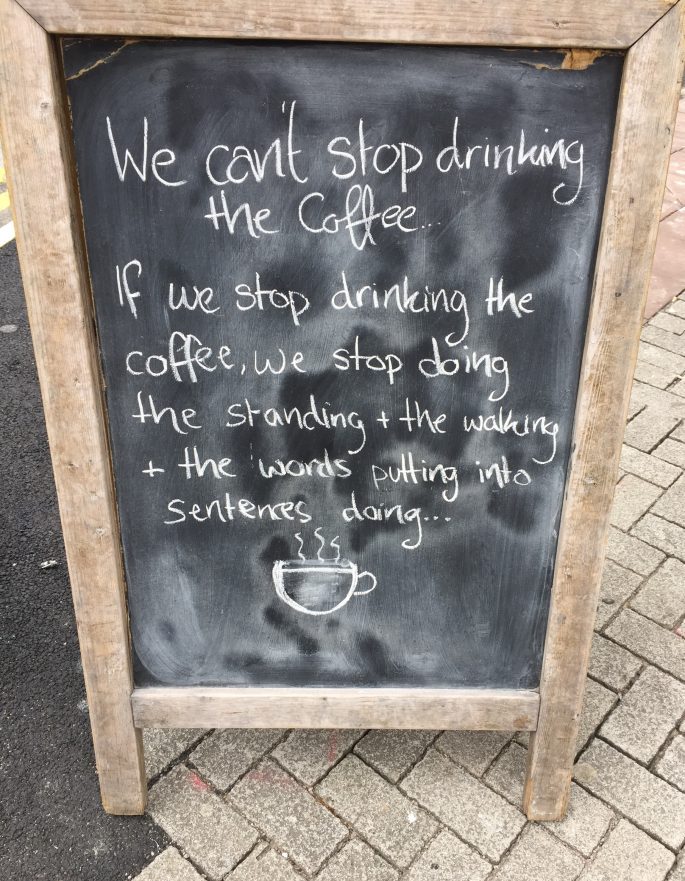 We can't stop drinking
the Coffee...
If we stop drinking the
coffee, we stop doing
the standing + the walking
+ the words putting into
sentences doing...